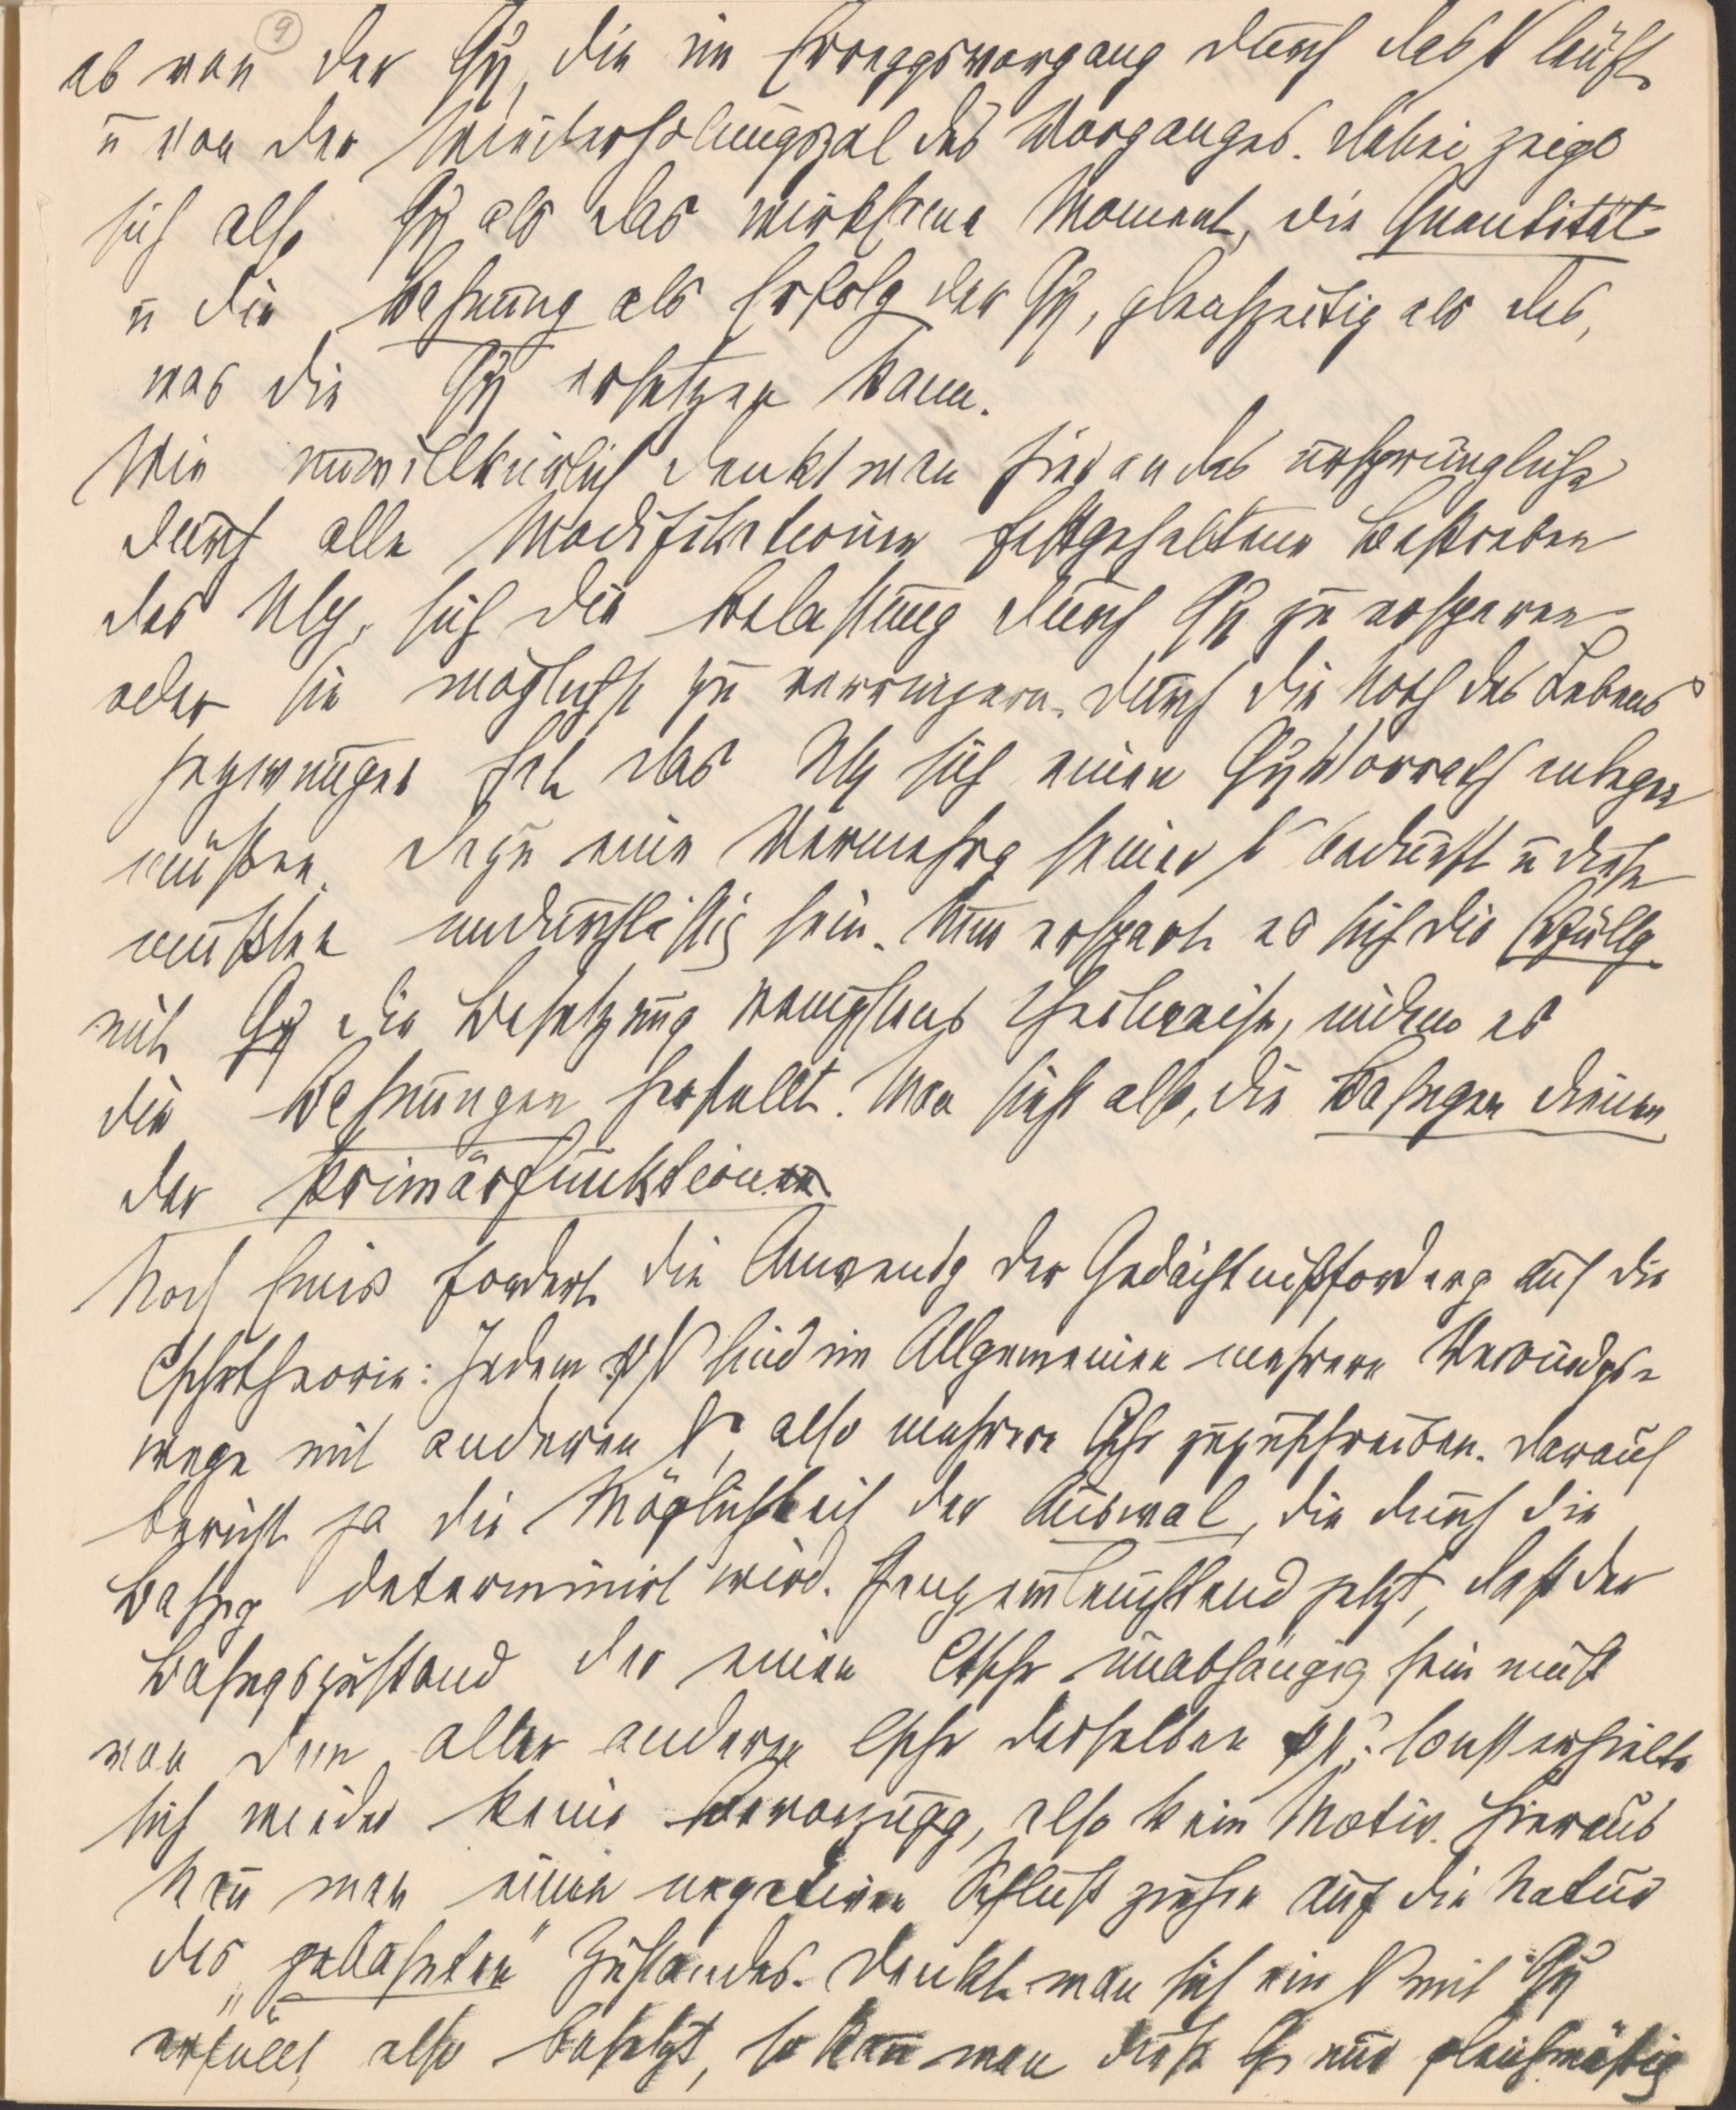 9
ab von der Qη, die im Erreggsvorgang durch das N läuft,
u von der Wiederholungszal des Vorganges. Dabei zeigt
sich also Qη als das wirksame Moment, die Quantität
u die Bahnung als Erfolg der Qη, gleichzeitig als das,
was die Qη ersetzen kann.
Wie unwillkürlich denkt man hier an das ursprüngliche
durch alle Modifikationen festgehaltene Bestreben
des Nsy, sich die Belastung durch Qη zu ersparen
oder sie möglichst zu verringern. Durch die Noth des Lebens
gezwungen hat das Nsy sich einen Qη Vorrath anlegen
müßen. Dazu eine Vermehrg seiner N bedurft u diese
mußten undurchläßig sein. Nun erspart es sich die Erfüllg
mit Qη die Besetzung wenigstens theilweise, indem es
die Bahnungen herstellt. Man sieht also, die Bahngen dienen
der Primärfunktion.
Noch etwas fordert die Anwendg der Gedächtnißforderg auf die
Cschrtheorie: Jedem ψN sind im Allgemeinen mehrere Verbindgs-
wege mit anderen N, also mehrere Cschr zuzuschreiben. Darauf
beruht ja die Möglichkeit der Auswal, die durch die
Bahng determinirt wird. Ganz einleuchtend jetzt, daß der
Bahngszustand der einen Cschr unabhängig sein muß
von dem aller anderen Cschr derselben ψN. Sonst erhielte
sich wieder keine Bevorzugg, also kein Motiv. Hieraus
kañ man einen negativen Schluß ziehen auf die Natur
des „gebahnten" Zustandes. Denkt man sich ein N mit Qη
erfüllt, also besetzt, so kañ man diese Q nur gleichmäßig